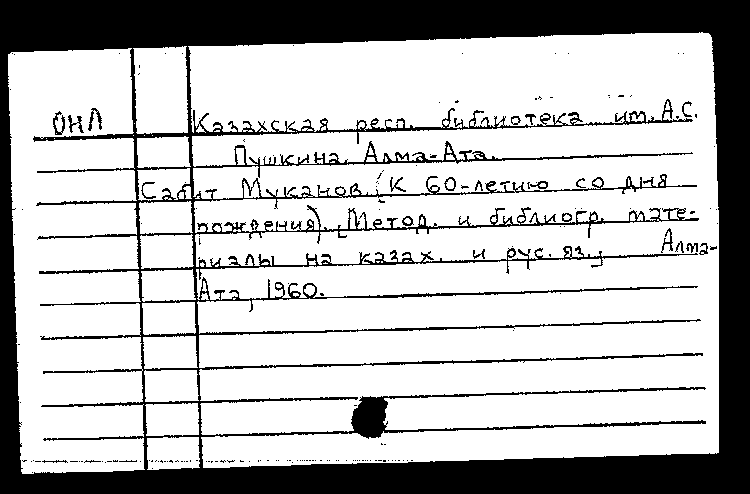 ОНЛ
Казахская респ. библиотека им. А.С.
Пушкина. Алма-Ата.
Сабит Муканов. (К 60-летию со дня
рождения). [Метод. и библиогр. мате-
риалы на казах. и рус. яз.; Алма-
Ата, 1960.